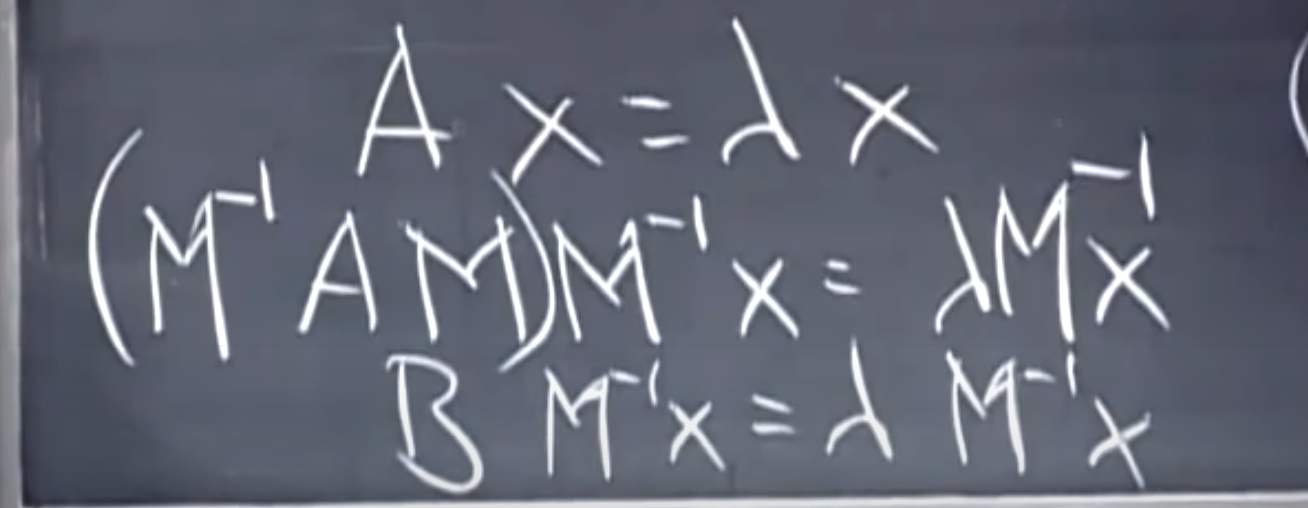 A x = λ x
(M⁻¹ A M) M⁻¹ x = λ M⁻¹ x
B M⁻¹ x = λ M⁻¹ x